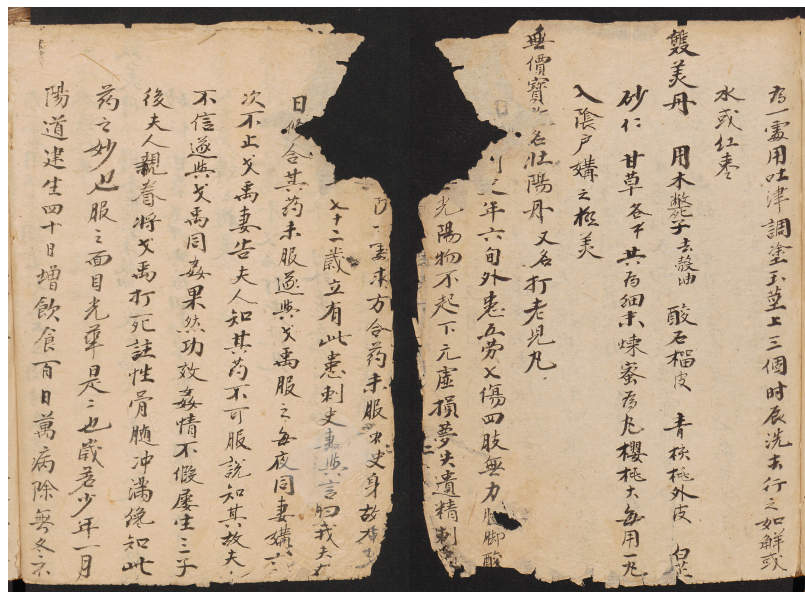 為一處用吐津調塗玉莖上三個时辰洗去行之如解或
水或红枣
雙美丹 用木鱉子去殼油 酸石榴皮 青核桃外皮 白芷
砂仁 甘草各等 共為細末煉蜜為丸櫻桃大每用一丸
入陰户媾之極美
無價寶 名壮陽丹又名打老児丸
之年六旬外患五劳七傷四肢無力 脚酸
光陽物不起下元虛損夢失遺精刺
妻来方合药未服 史身故
七十二歲立有此患刺史妻與言 我夫
日 合其药未服遂與戈禹服之每夜同妻媾六
次不止戈禹妻告夫人知其药不可服説知其故夫
不信遂與戈禹同姦果然功效姦情不假屢生三子
後夫人親眷將戈禹打死註性骨髄冲满纔知此
药之妙也服之面目光華是二也歲若少年一月
陽道建生四十日增飲食百日萬病除無冬不